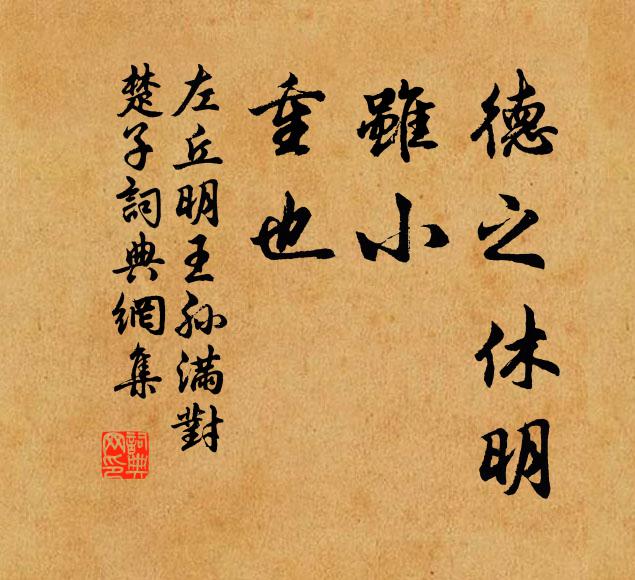 德之休明
雖小
重也
左丘明王孫滿對
楚子詞典網集
詞典網印